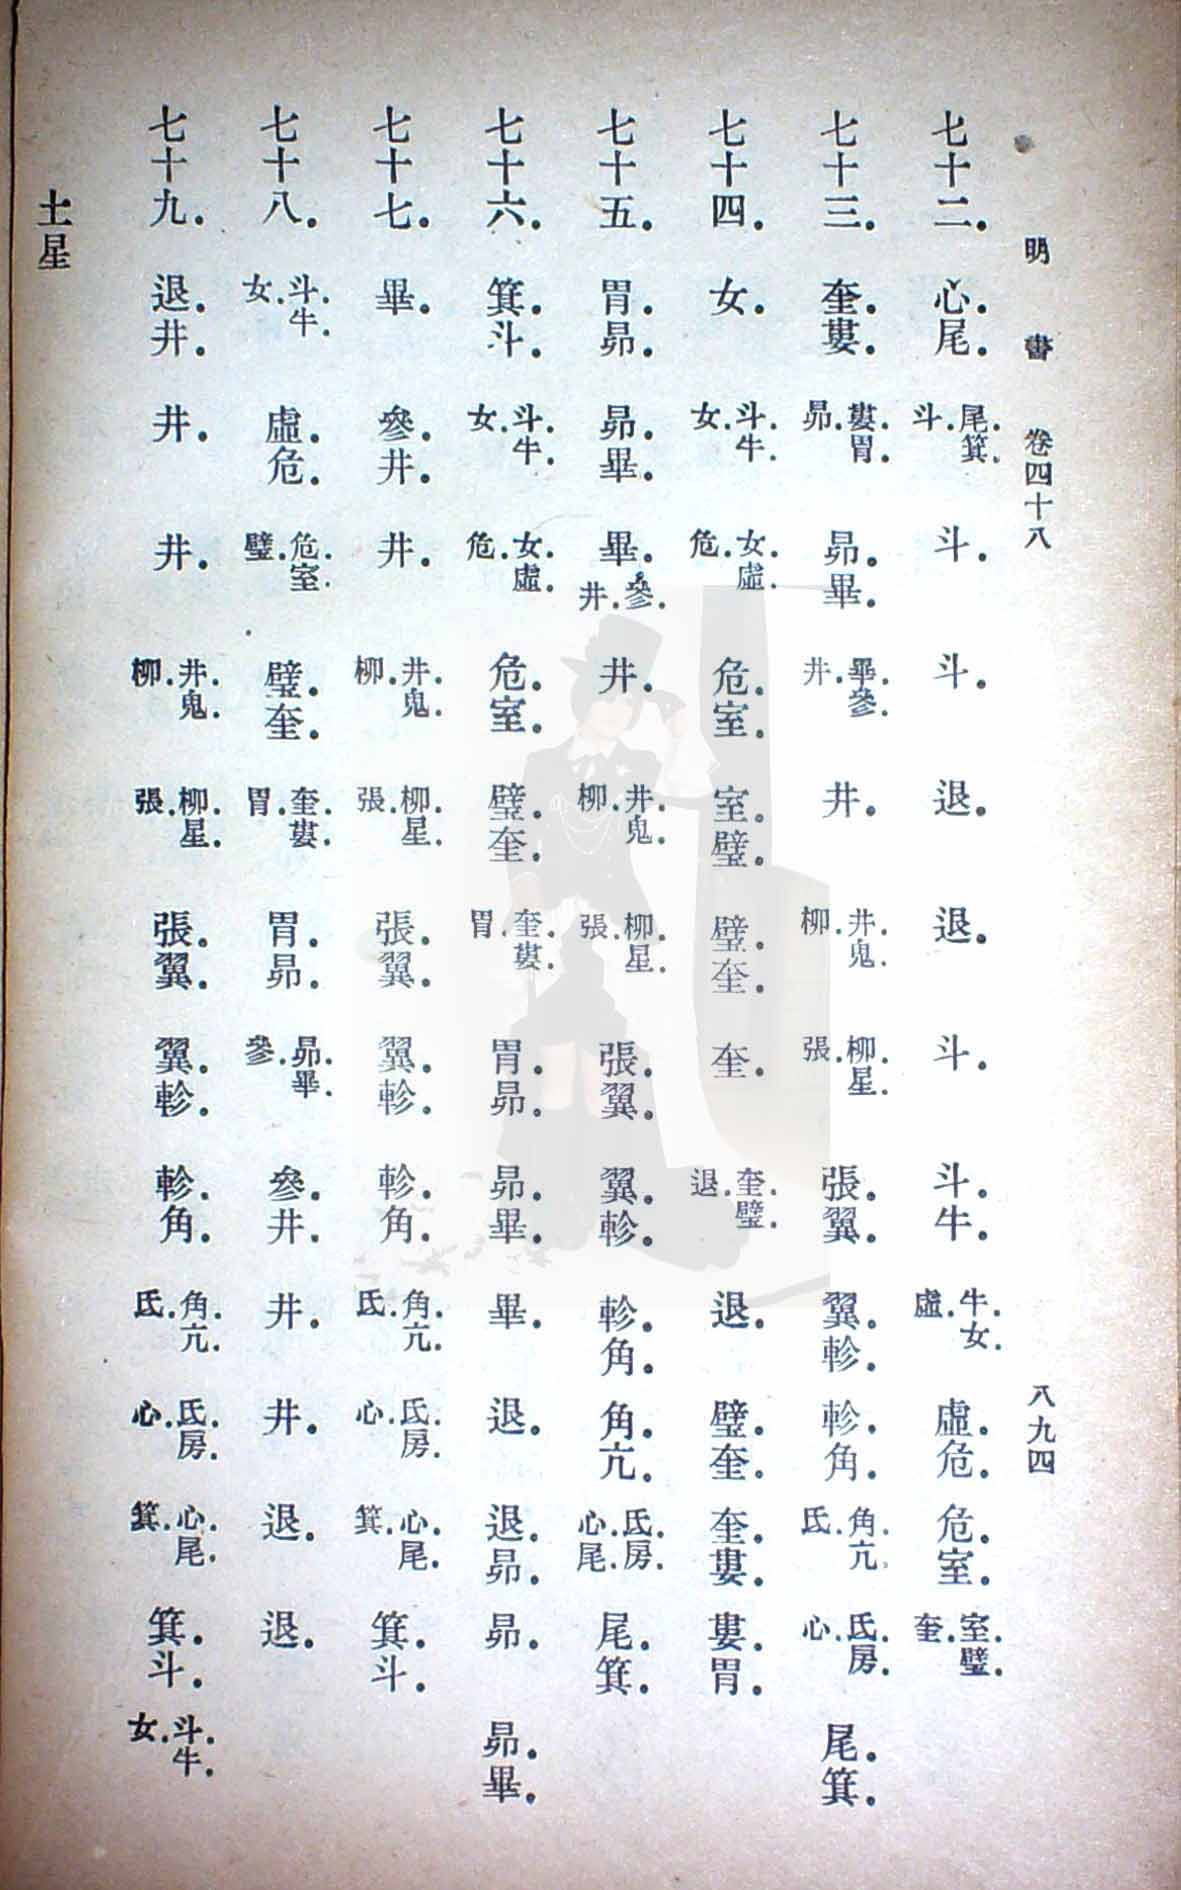 明書 卷四十八 八九四
七十二．心．尾．尾．箕．斗．斗．斗．退．退．斗．斗．牛．牛．女．虛．虛．危．危．室．室．壁．奎．
七十三．奎．婁．婁．胃．昴．昴．畢．畢．參．井．井．井．鬼．柳．柳．星．張．張．翼．翼．軫．軫．角．角．亢．氐．氐．房．心．尾．箕．
七十四．女．斗．牛．女．女．虛．危．危．室．室．壁．壁．奎．奎．奎．壁．退．退．壁．奎．奎．婁．婁．胃．
七十五．胃．昴．昴．畢．畢．參．井．井．井．鬼．柳．柳．星．張．張．翼．翼．軫．軫．角．角．亢．氐．房．心．尾．尾．箕．
七十六．箕．斗．斗．牛．女．女．虛．危．危．室．壁．奎．奎．婁．胃．胃．昴．昴．畢．畢．退．退．昴．昴．昴．畢．
七十七．畢．參．井．井．井．鬼．柳．柳．星．張．張．翼．翼．軫．軫．角．角．亢．氐．氐．房．心．心．尾．箕．箕．斗．
七十八．斗．牛．女．虛．危．危．室．壁．壁．奎．奎．婁．胃．胃．昴．昴．畢．參．參．井．井．井．退．退．
七十九．退．井．井．井．井．鬼．柳．柳．星．張．張．翼．翼．軫．軫．角．角．亢．氐．氐．房．心．心．尾．箕．箕．斗．斗．牛．女．
土星